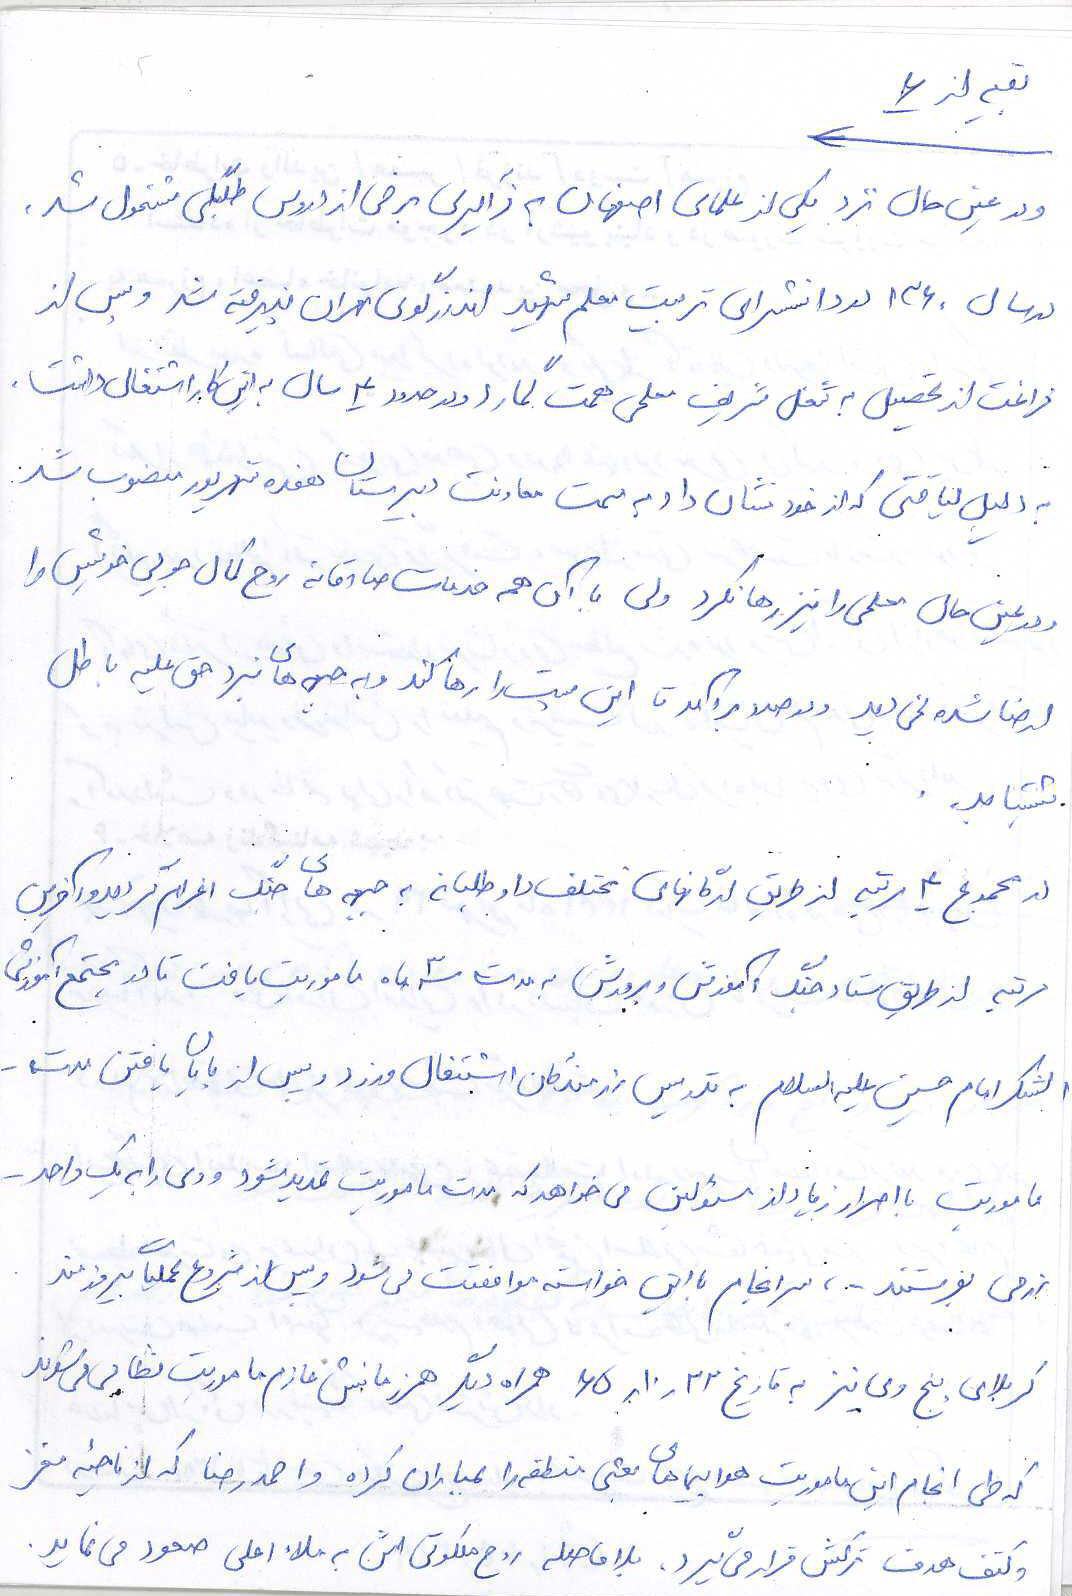 بقیه از ۶
و در عین حال نزد یکی از علمای اصفهان به فراگیری برخی از دروس طلبگی مشغول شد.
در سال ۱۳۶۰ در دانشسرای تربیت معلم شهید اندرزگوی تهران پذیرفته شد و پس از
فراغت از تحصیل به شغل شریف معلمی همت گمارد و در حدود ۴ سال به این کار اشتغال داشت.
به دلیل لیاقتی که از خود نشان داد به سمت معاونت دبیرستان هفده شهریور منصوب شد.
و در عین حال معلمی را نیز رها نکرد ولی با آن همه خدمات صادقانه روح کمال جوی خویش را
ارضا شده نمی دید و در صدد برآمد تا این پست را رها کند و به جبهه های نبرد حق علیه باطل
بشتابد.
در مجموع ۴ مرتبه از طریق ارگانهای مختلف داوطلبانه به جبهه های جنگ اعزام گردید و آخرین
مرتبه از طریق ستاد جنگ آموزش و پرورش به مدت ۳ ماه ماموریت یافت تا در مجتمع آموزشی
لشکر امام حسین علیه السلام به تدریس رزمندگان اشتغال ورزد و پس از پایان یافتن مدت -
ماموریت با اصرار زیاد از مسئولین می خواهد که مدت ماموریت تمدید شود و وی را به یک واحد -
رزمی بفرستند - ، سرانجام با این خواسته موافقت می شود و پس از شروع عملیات پیروزمند
کربلای پنج وی نیز به تاریخ ۲۲ ر ۱۰ ر ۶۵ همراه دیگر همرزمانش عازم ماموریت نظامی می شوند
که طی انجام این ماموریت هواپیماهای بعثی منطقه را بمباران کرده و احمدرضا که از ناحیه مغز
و کتف هدف ترکش قرار می گیرد، بلافاصله روح ملکوتی اش به ملاء اعلی صعود می نماید.